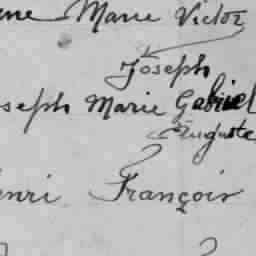 ene Marie Victor
Joseph
oseph Marie Gabriel
Auguste
enri François